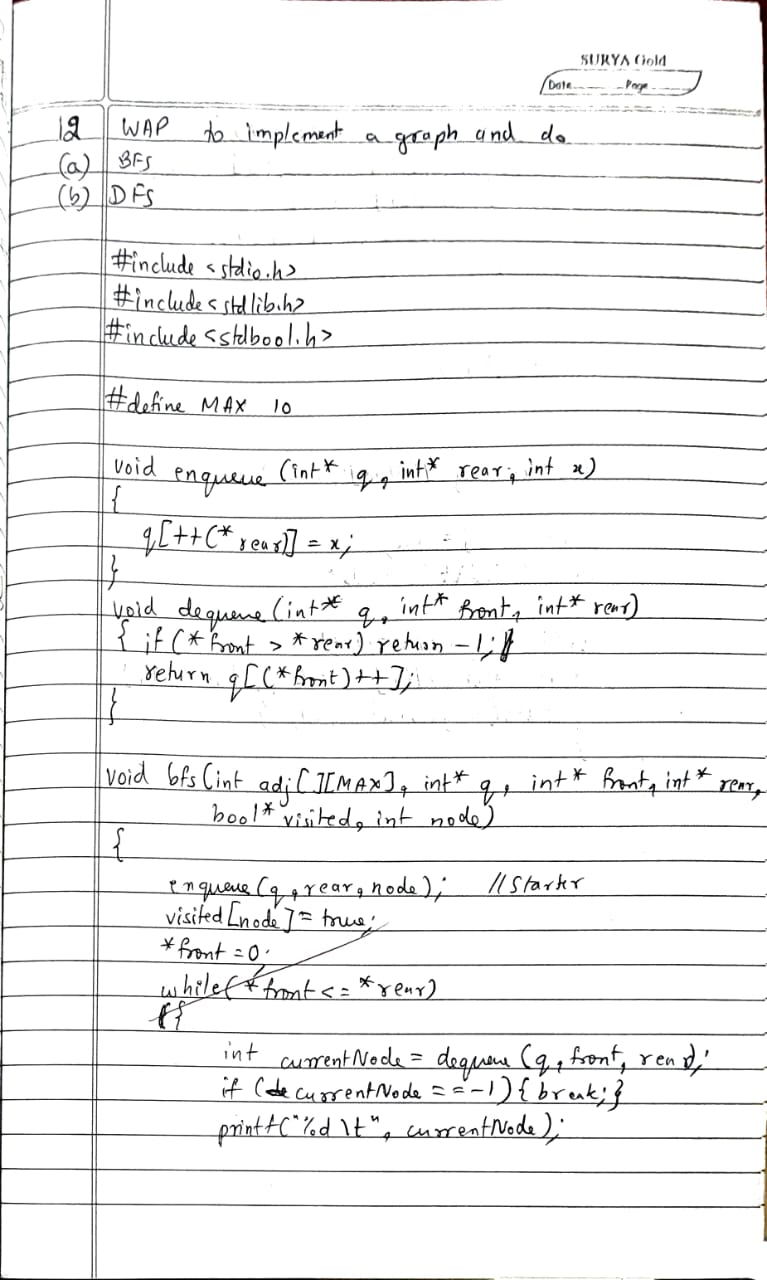 SURYA Gold
Date Page
12 WAP to implement a graph and do
(a) BFS
(b) DFS
#include <stdio.h>
#include <stdlib.h>
#include <stdbool.h>
#define MAX 10
void enqueue (int* q, int* rear, int x)
{
q[++(*rear)] = x;
}
void dequeue (int* q, int* front, int* rear)
{ if (*front > *rear) return -1;
return q[(*front)++];
}
void bfs (int adj[][MAX], int* q, int* front, int* rear,
bool* visited, int node)
{
enqueue (q, rear, node); // Starter
visited[node] = true;
*front = 0;
while (*front <= *rear)
{
int currentNode = dequeue (q, front, rear);
if (currentNode == -1) { break; }
printf("%d \t", currentNode);